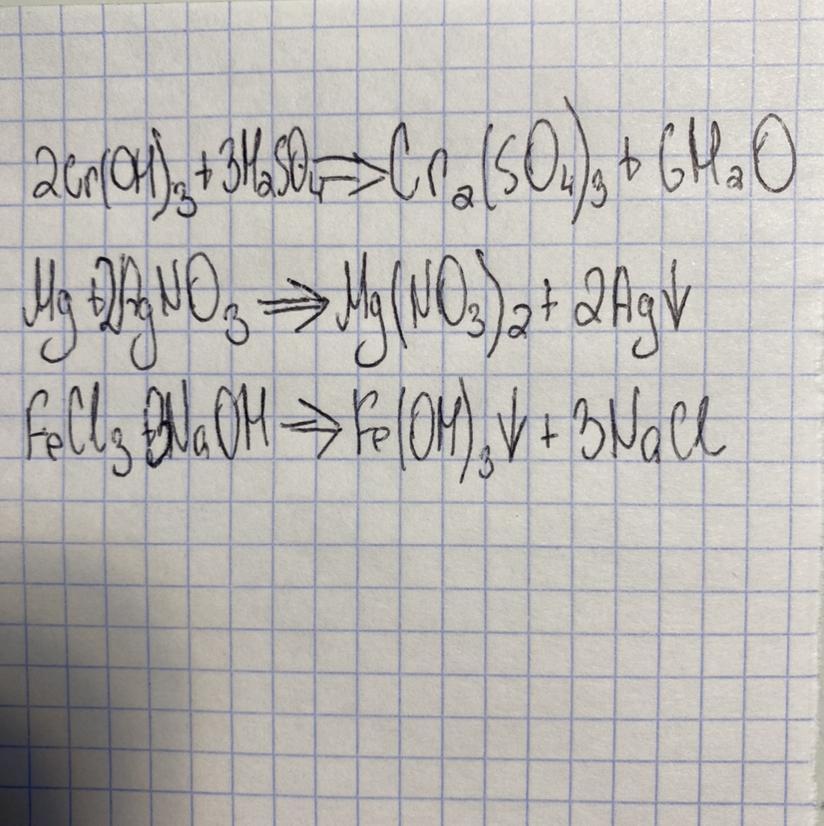 2Cr(OH)₃+3H₂SO₄⇒Cr₂(SO₄)₃+6H₂O
Mg+2AgNO₃⇒Mg(NO₃)₂+2Ag↓
FeCl₃+3NaOH⇒Fe(OH)₃↓+3NaCl